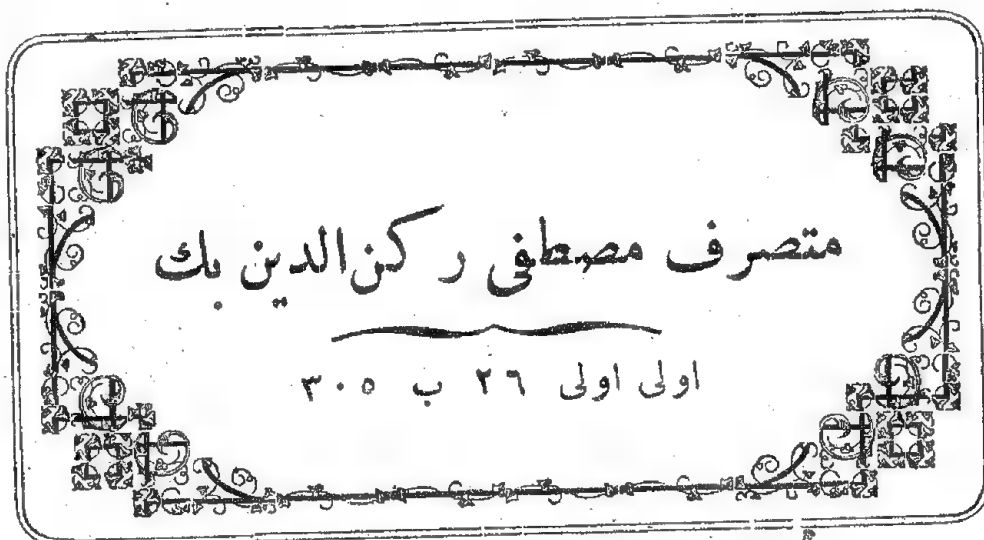 متصرف مصطفى ركن الدين بك
اولى اولى ٢٦ ب ٣٠٥